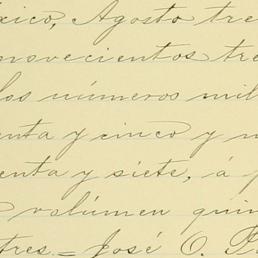 xico, Agosto tre
novecientos tre
los números mil
enta y cinco y m
enta y siete, á p
volúmen quin
tres = José O. P.